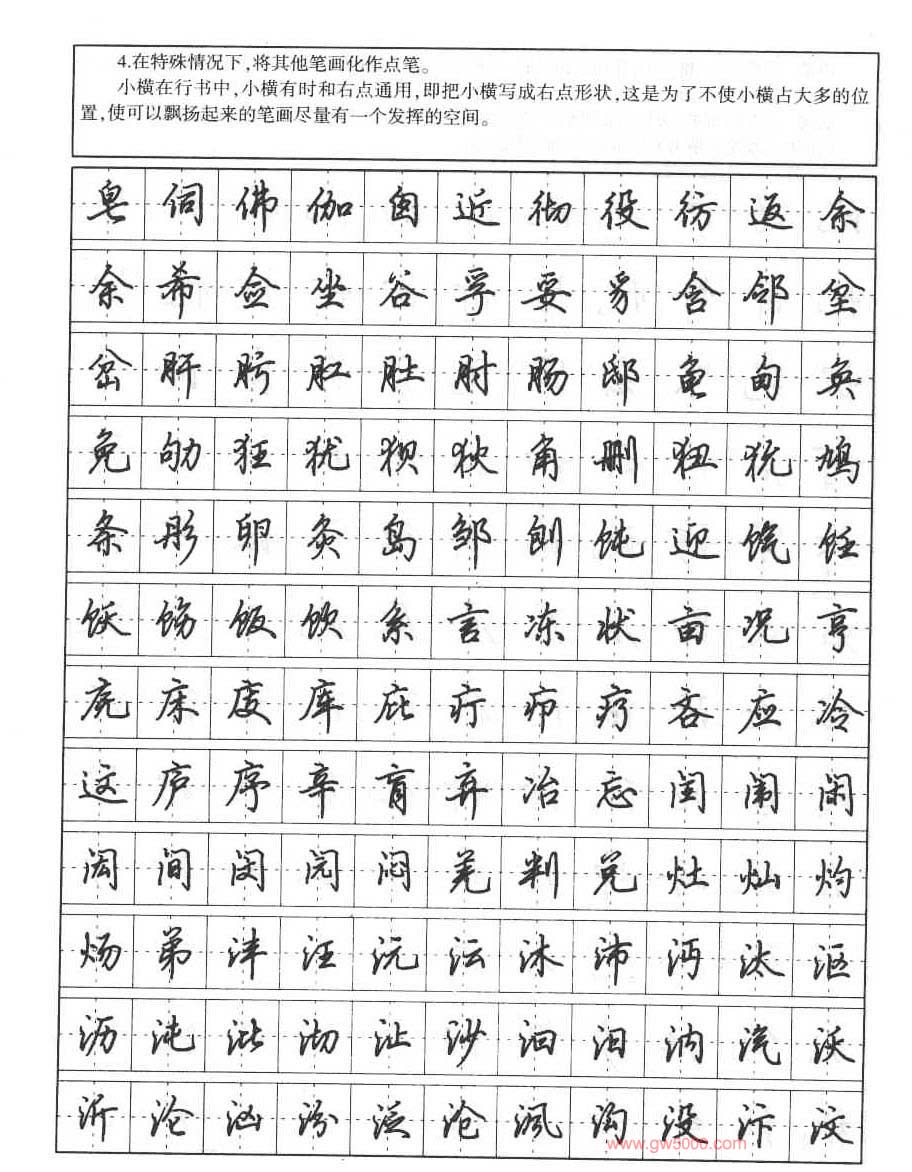 4.在特殊情况下,将其他笔画化作点笔。
小横在行书中,小横有时和右点通用,即把小横写成右点形状,这是为了不使小横占大多的位
置,使可以飘扬起来的笔画尽量有一个发挥的空间。
皂 伺 佛 伽 囱 近 彻 役 彷 返 余
余 希 佥 坐 谷 孚 妥 豸 含 邻 坌
岔 肝 肟 肛 肚 肘 肠 邸 龟 甸 奂
免 劬 狂 犹 狈 狄 角 删 狃 犹 鸠
条 彤 卵 灸 岛 邹 刨 饨 迎 饩 饪
饫 饬 饭 饮 系 言 冻 状 亩 况 亨
庑 床 庋 库 庇 疔 疖 疗 吝 应 冷
这 庐 序 辛 肓 弃 冶 忘 闰 闱 闲
闳 间 闵 闶 闷 羌 判 兑 灶 灿 灼
炀 弟 沣 汪 沅 沄 沐 沛 沔 汰 沤
沥 沌 沘 沏 沚 沙 汩 汨 汭 汽 沃
沂 沦 汹 汾 泛 沧 沨 沟 没 汴 汶
www.gw5000.com